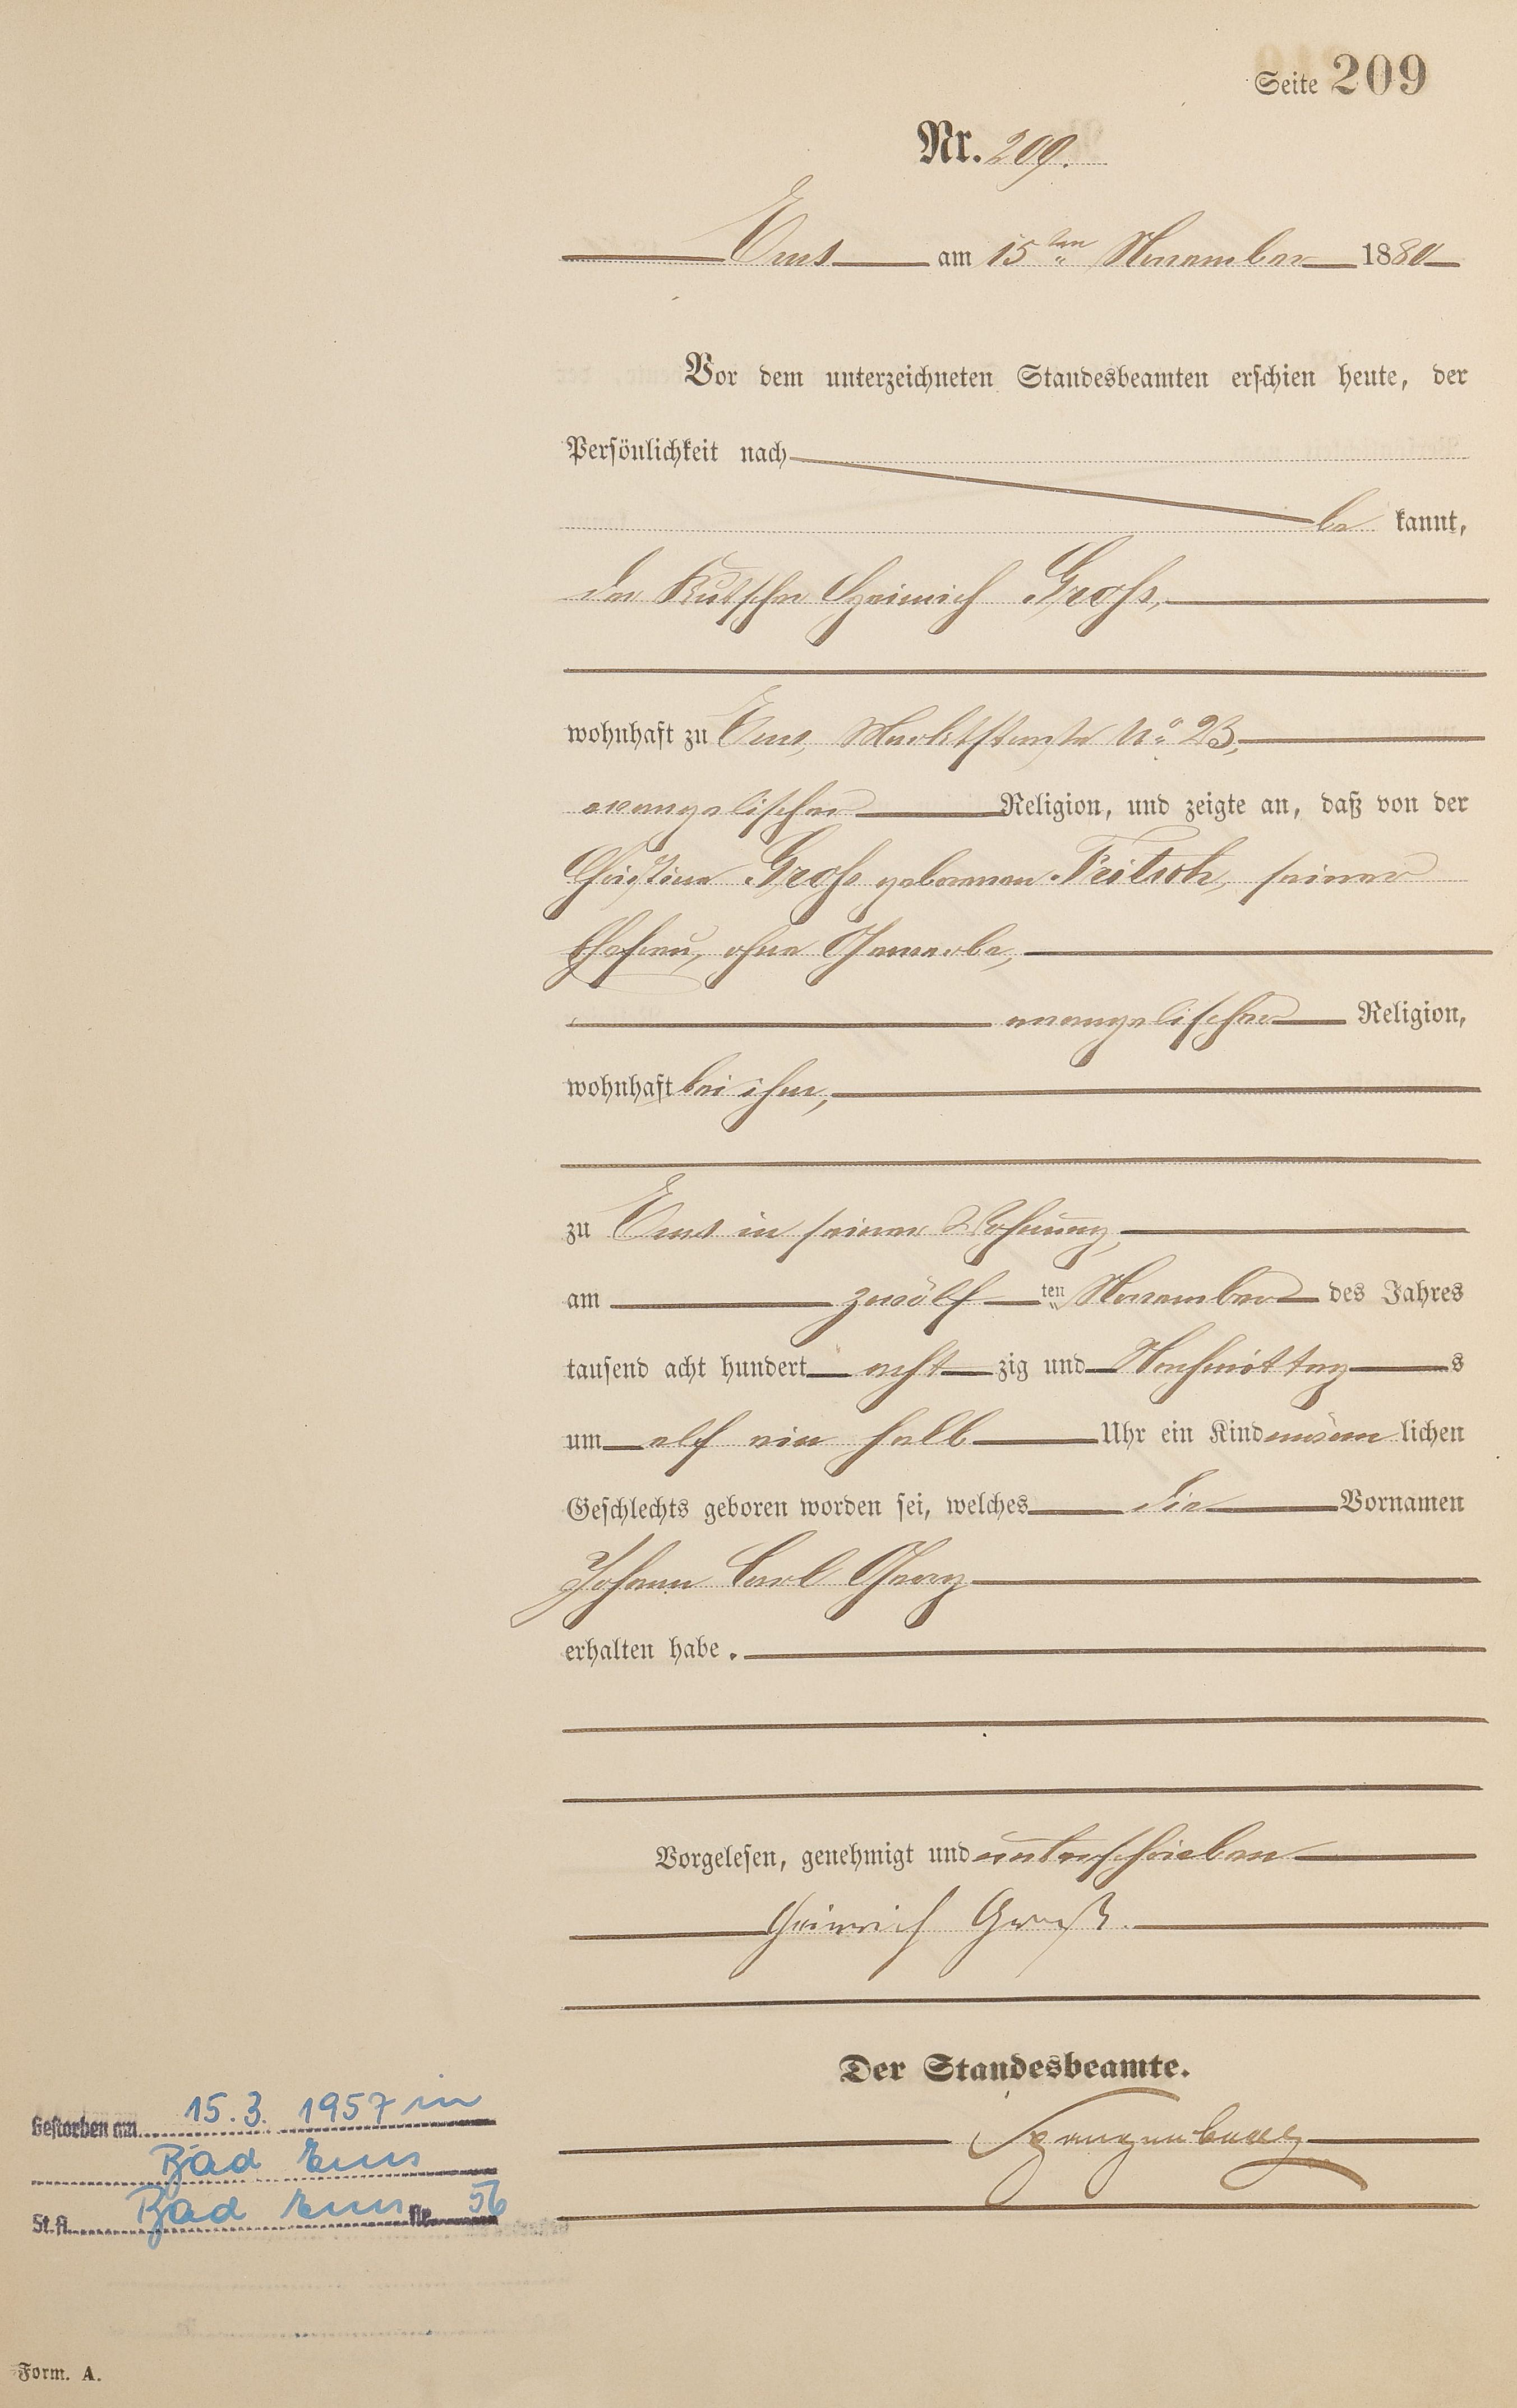 Seite 209
Nr. 209.
Ems am 15ten November 1880
Vor dem unterzeichneten Standesbeamten erschien heute, der
Persönlichkeit nach
be kannt,
der Kutscher Heinrich Groß,
wohnhaft zu Ems, Marktstraße No 23,
evangelischer Religion, und zeigte an, daß von der
Christine Groß geborenen Fritsch, seiner
Ehefrau, ohne Gewerbe,
evangelischer Religion,
wohnhaft bei ihm,
zu Ems in seiner Wohnung,
am zwölf ten November des Jahres
tausend acht hundert acht zig und Nachmittag s
um elf ein halb Uhr ein Kind männ lichen
Geschlechts geboren worden sei, welches die Vornamen
Johann Carl Georg
erhalten habe.
Vorgelesen, genehmigt und unterschrieben
Heinrich Groß.
Der Standesbeamte.
Spangenberg
Gestorben am 15.3.1957 in
Bad Ems
St.A. Bad Ems Nr. 56
Form. A.